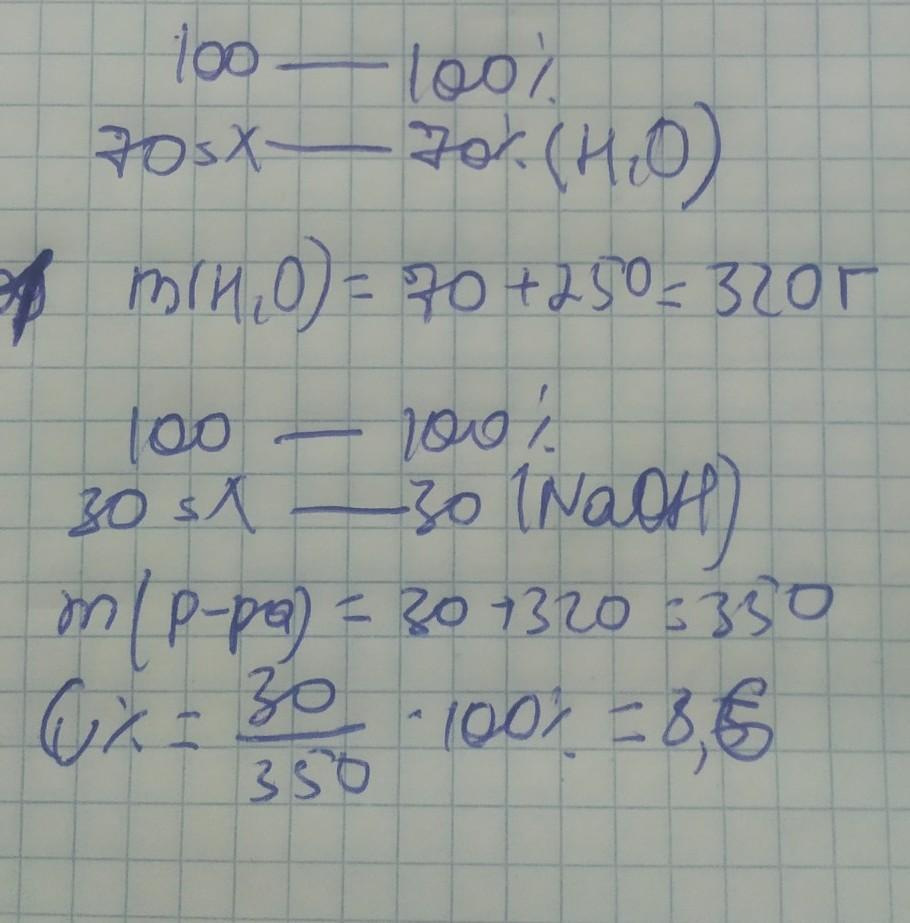 100 — 100%
70 = X — 70% (H₂O)
m(H₂O) = 70 + 250 = 320г
100 — 100%
30 = X — 30 (NaOH)
m(р-ра) = 30 + 320 = 350
ω% = 30/350 · 100% = 8,6